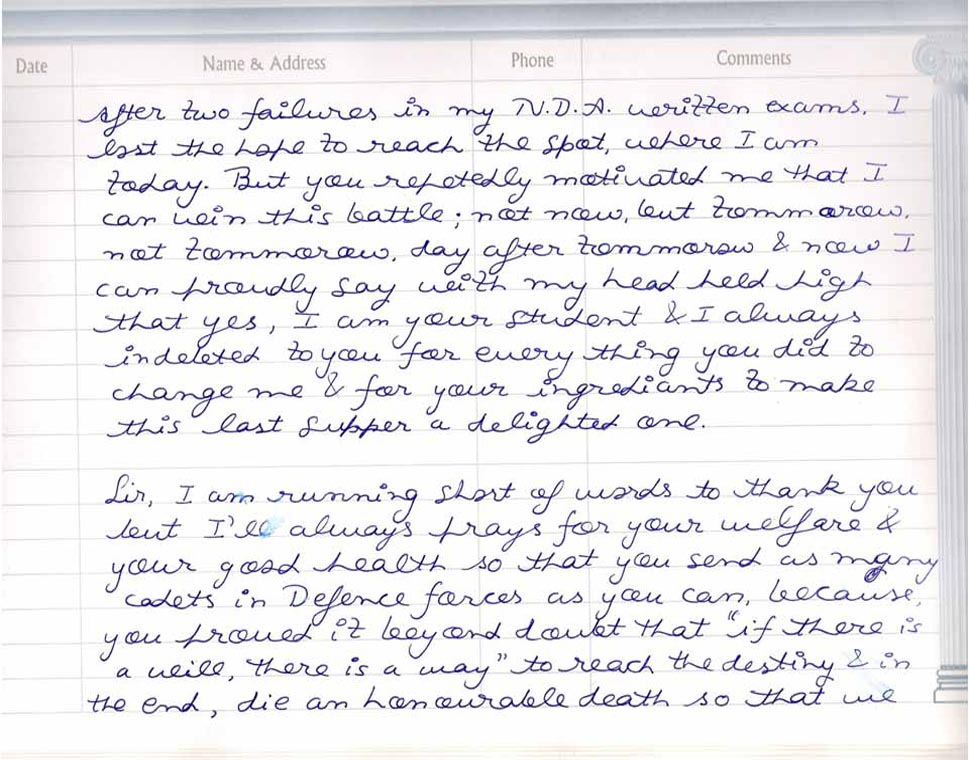 Date Name & Address Phone Comments
After two failures in my N.D.A. written exams, I
lost the hope to reach the spot, where I am
today. But you repetedly motivated me that I
can win this battle; not now, but tommorow,
not tommorow, day after tommorow & now I
can proudly say with my head held high
that yes, I am your student & I always
indebted to you for every thing you did to
change me & for your ingrediants to make
this last supper a delighted one.
Sir, I am running short of words to thank you
but I'll always prays for your welfare &
your good health so that you send as many
cadets in Defence forces as you can, because,
you proved it beyond doubt that "if there is
a will, there is a way" to reach the destiny & in
the end, die an honourable death so that we